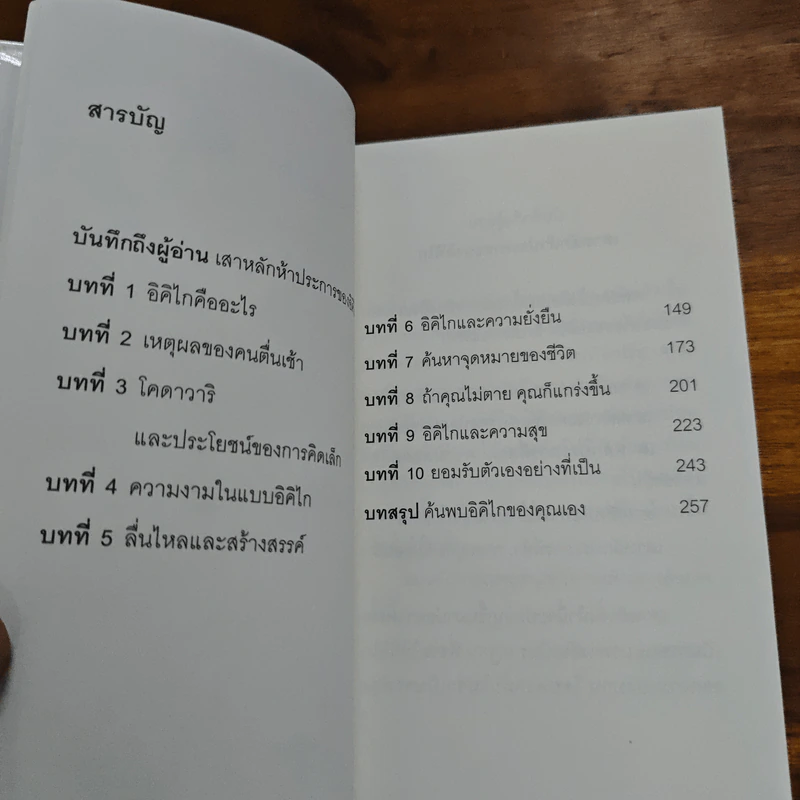 สารบัญ
บันทึกถึงผู้อ่าน เสาหลักห้าประการของ
บทที่ 1 อิคิไกคืออะไร
บทที่ 2 เหตุผลของคนตื่นเช้า
บทที่ 3 โคดาวาริ
และประโยชน์ของการคิดเล็ก
บทที่ 4 ความงามในแบบอิคิไก
บทที่ 5 ลื่นไหลและสร้างสรรค์
บทที่ 6 อิคิไกและความยั่งยืน 149
บทที่ 7 ค้นหาจุดหมายของชีวิต 173
บทที่ 8 ถ้าคุณไม่ตาย คุณก็แกร่งขึ้น 201
บทที่ 9 อิคิไกและความสุข 223
บทที่ 10 ยอมรับตัวเองอย่างที่เป็น 243
บทสรุป ค้นพบอิคิไกของคุณเอง 257